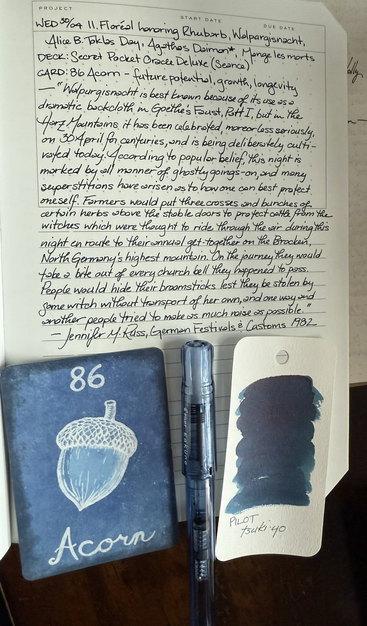 PROJECT START DATE DUE DATE
WED 30/04 11. Floréal honoring Rhubarb, Walpurgisnacht,
Alice B. Toklas Day, Agathos Daimon*, Mange les morts
DECK: Secret Pocket Oracle Deluxe (Seance)
CARD: 86 Acorn - future potential, growth, longevity
— "Walpurgisnacht is best known because of its use as a
dramatic backcloth in Goethe's Faust, Part I, but in the
Harz Mountains, it has been celebrated, more or less seriously,
on 30 April for centuries, and is being deliberately culti-
vated today. According to popular belief, this night is
marked by all manner of ghostly goings-on, and many
superstitions have arisen as to how one can best protect
oneself. Farmers would put three crosses and bunches of
certain herbs above the stable doors to protect cattle from the
witches which were thought to ride through the air during this
night en route to their annual get-together on the Brocken,
North Germany's highest mountain. On the journey they would
take a bite out of every church bell they happened to pass.
People would hide their broomsticks lest they be stolen by
some witch without transport of her own, and one way and
another people tried to make as much noise as possible."
— Jennifer M. Russ, German Festivals & Customs 1982
86
Acorn
PILOT
tsuki-yo